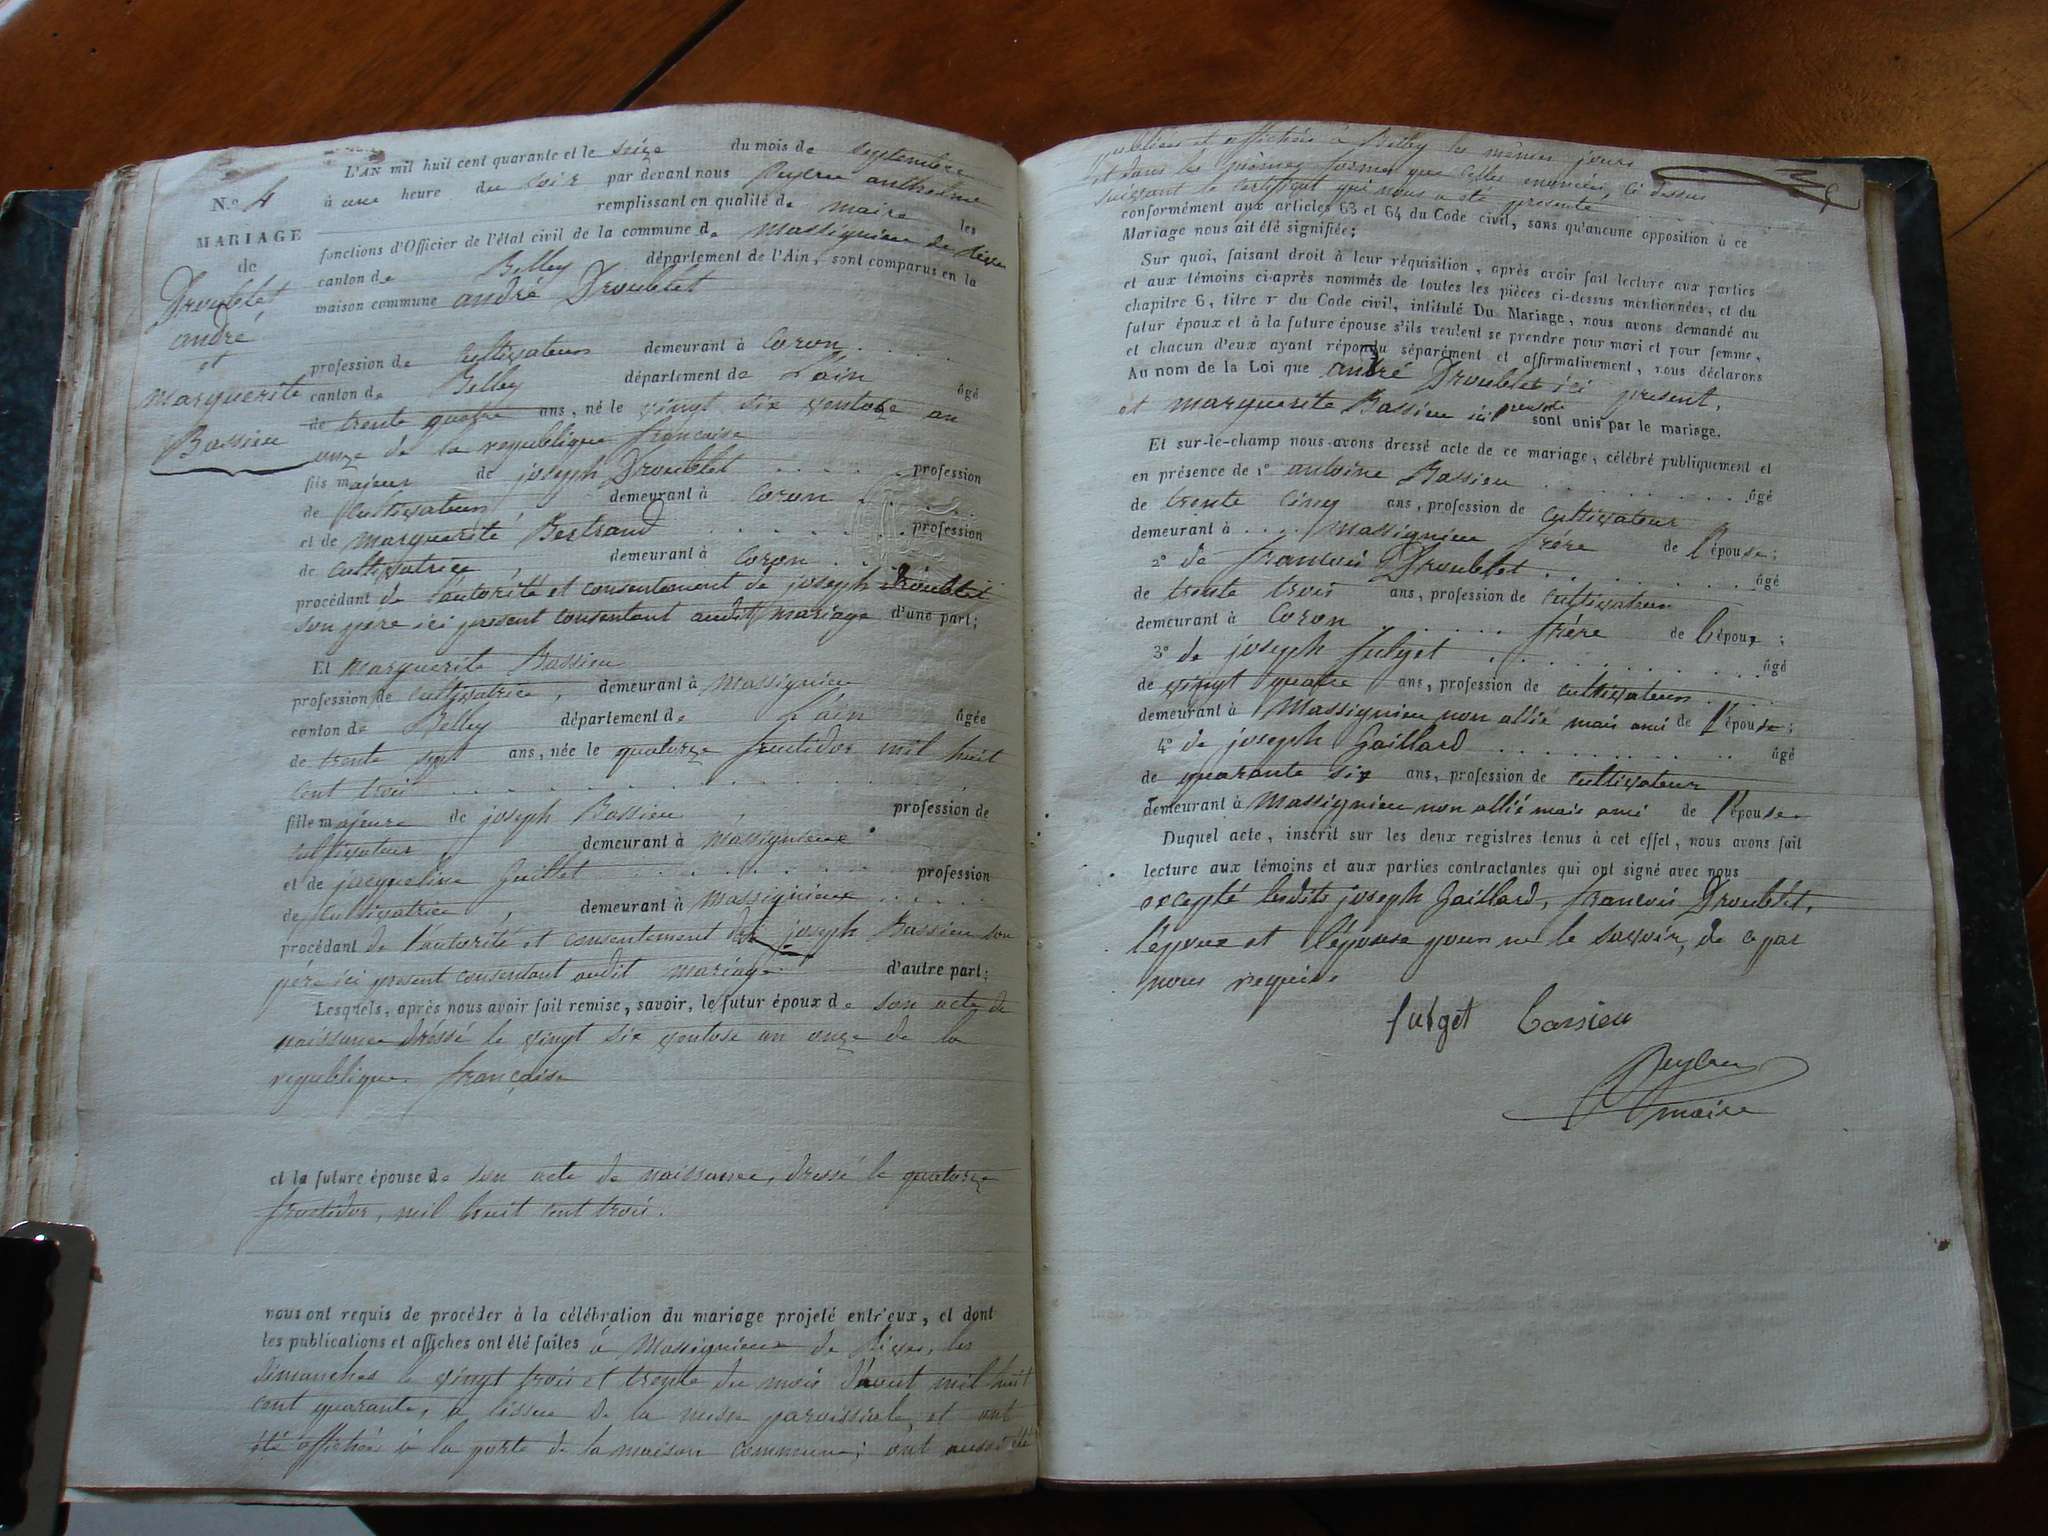 N.o 4
MARIAGE
de
Droublet
andré
et
marguerite
Bassieu
L'AN mil huit cent quarante et le seize du mois de septembre
à une heure du soir par devant nous Peyleu anthelme
remplissant en qualité de maire les
fonctions d'Officier de l'état civil de la commune de Massignieu de Rives
canton de Belley département de l'Ain, sont comparus en la
maison commune andré Droublet
profession de cultivateur demeurant à Coron . . . .
canton de Belley département de l'ain âgé
de trente quatre ans, né le vingt six ventose an
onze de la republique française
fils majeur de joseph Droublet . . . . . profession
de cultivateur, demeurant à Coron . . . . .
et de marguerite Bertrand . . . . . profession
de cultivatrice, demeurant à Coron . . . .
procédant de l'autorité et consentement de joseph Droublet
son père ici présent consentant audit mariage d'une part;
Et Marguerite Bassieu
profession de cultivatrice, demeurant à Massignieu
canton de Belley département de l'ain âgée
de trente sept ans, née le quatorze fructidor mil huit
cent trois . . . . . . . . . .
fille majeure de joseph Bassieu, profession de
cultivateur demeurant à Massignieux
et de jacqueline Guillet . . . . . . . profession
de cultivatrice, demeurant à massignieux . . . . .
procédant de l'autorité et consentement de joseph Bassieu son
père ici présent consentant audit mariage. d'autre part;
Lesquels, après nous avoir fait remise, savoir, le futur époux de son acte de
naissance dréssé le vingt six ventose an onze de la
republique française
et la future épouse de son acte de naissance, dressé le quatorze
fructidor, mil huit cent trois.
nous ont requis de procéder à la célébration du mariage projeté entr'eux, et dont
les publications et affiches ont été faites à Massignieux de Rives, les
dimanches le vingt trois et trente du mois d'aout mil huit
cent quarante, à l'issue de la messe paroissiale, et ont
été affichées à la porte de la maison commune; ont aussi été
publiées et affichées à Belley les mêmes jours
et dans les mêmes formes que celles énoncées ci dessus
suivant le certificat qui nous a été présenté
conformément aux articles 63 et 64 du Code civil, sans qu'aucune opposition à ce
Mariage nous ait été signifiée;
Sur quoi, faisant droit à leur réquisition, après avoir fait lecture aux parties
et aux témoins ci-après nommés de toutes les pièces ci-dessus mentionnées, et du
chapitre 6, titre r du Code civil, intitulé Du Mariage, nous avons demandé au
futur époux et à la future épouse s'ils veulent se prendre pour mari et pour femme,
et chacun d'eux ayant répondu séparément et affirmativement, nous déclarons
Au nom de la Loi que andré Droublet ici présent,
et marguerite Bassieu ici présente sont unis par le mariage.
Et sur-le-champ nous avons dressé acte de ce mariage, célébré publiquement et
en présence de 1o antoine Bassieu . . . . . . . . . . âgé
de trente cinq ans, profession de cultivateur
demeurant à . . . . Massignieu frère de l'épouse;
2o de françois Droublet . . . . . . . . . . âgé
de trente trois ans, profession de cultivateur
demeurant à Coron . . . . . . frère de l'époux;
3o de joseph fulget . . . . . . . . . . . âgé
de vingt quatre ans, profession de cultivateur . . . .
demeurant à Massignieu non allié mais ami de l'épouse;
4o de joseph Gaillard . . . . . . . . . . âgé
de quarante six ans, profession de cultivateur
demeurant à Massignieu non allié mais ami de l'épouse.
Duquel acte, inscrit sur les deux registres tenus à cet effet, nous avons fait
lecture aux témoins et aux parties contractantes qui ont signé avec nous
excepté lesdits joseph Gaillard, françois Droublet,
l'époux et l'épouse pour ne le savoir, de ce par
nous requis.
fulget Bassieu
Peyleu
maire